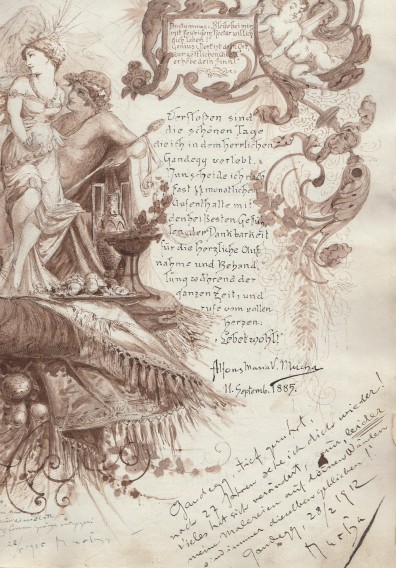 Autumnus: Bleibe bei mir
mit
Nectar will ich
dich laben!
Genius:
Verflossen sind
die schönen Tage
die ich in dem herrlichen
Gandegg verlebt.
Nun scheide ich nach
fast 11 monatlichem
Aufenthalte mit
den heißesten Gefüh
len der Dankbarkeit
für die herzliche Auf
nahme und Behand
lung während der
ganzen Zeit; und
rufe vom vollen
Herzen:
„Lebet wohl!"
Alfons Maria V. Mucha
11. Septemb. 1885.
Gandegg, tief gerührt,
nach 27 Jahren sehe ich dich wieder!
Vieles hat sich verändert, nur, leider
meine Malereien auf Wänden
sind immer dieselben geblieben!!
Gandegg, 28/2 1912
Mucha